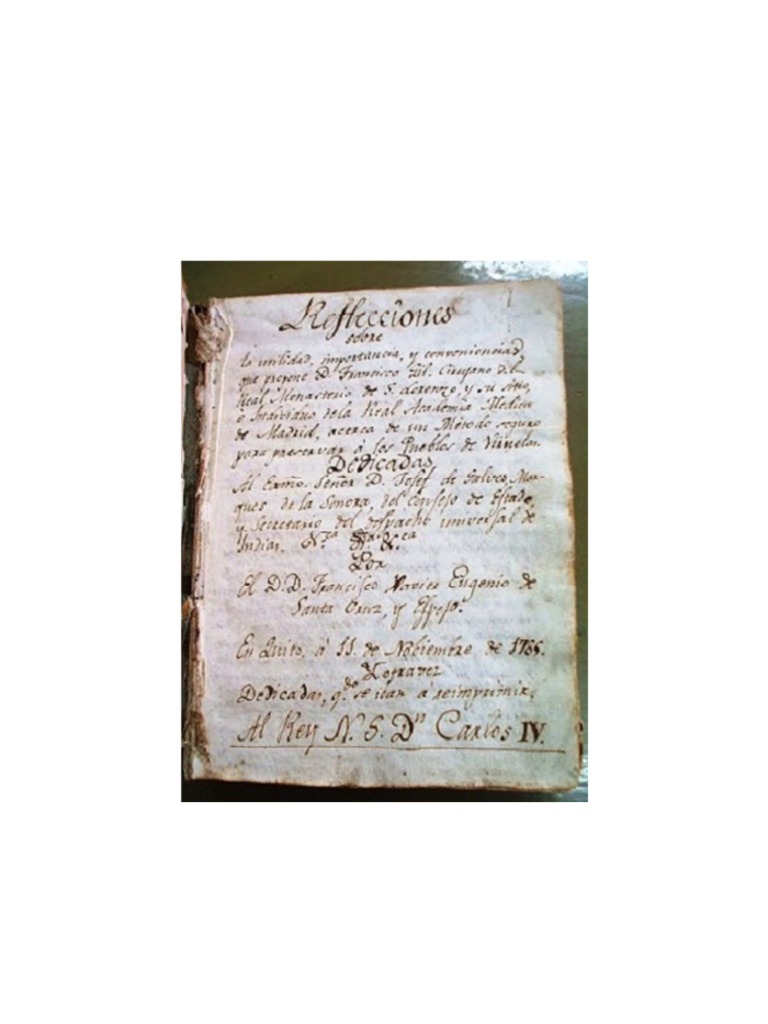 Reflecciones
sobre
la utilidad, importancia, y conveniencias,
que propone D. Francisco Gil, Cirujano del
Real Monasterio de S. Lorenzo, y su Sitio,
e Individuo de la Real Academia Medica
de Madrid, acerca de un Método seguro
para preservar á los Pueblos de Viruelas.
Dedicadas
Al Exmo. Señor D. Josef de Galvez, Mar-
ques de la Sonora, del Consejo de Estado,
y Secretario del despacho universal de
Indias.
Por
El D.D. Francisco Xavier Eugenio de
Santa Cruz, y Espejo.
En Quito, á 11. de Nobiembre de 1785.
Dedicadas, qdo. se ivan á reimprimir,
Al Rey N. S. Dn Carlos IV.